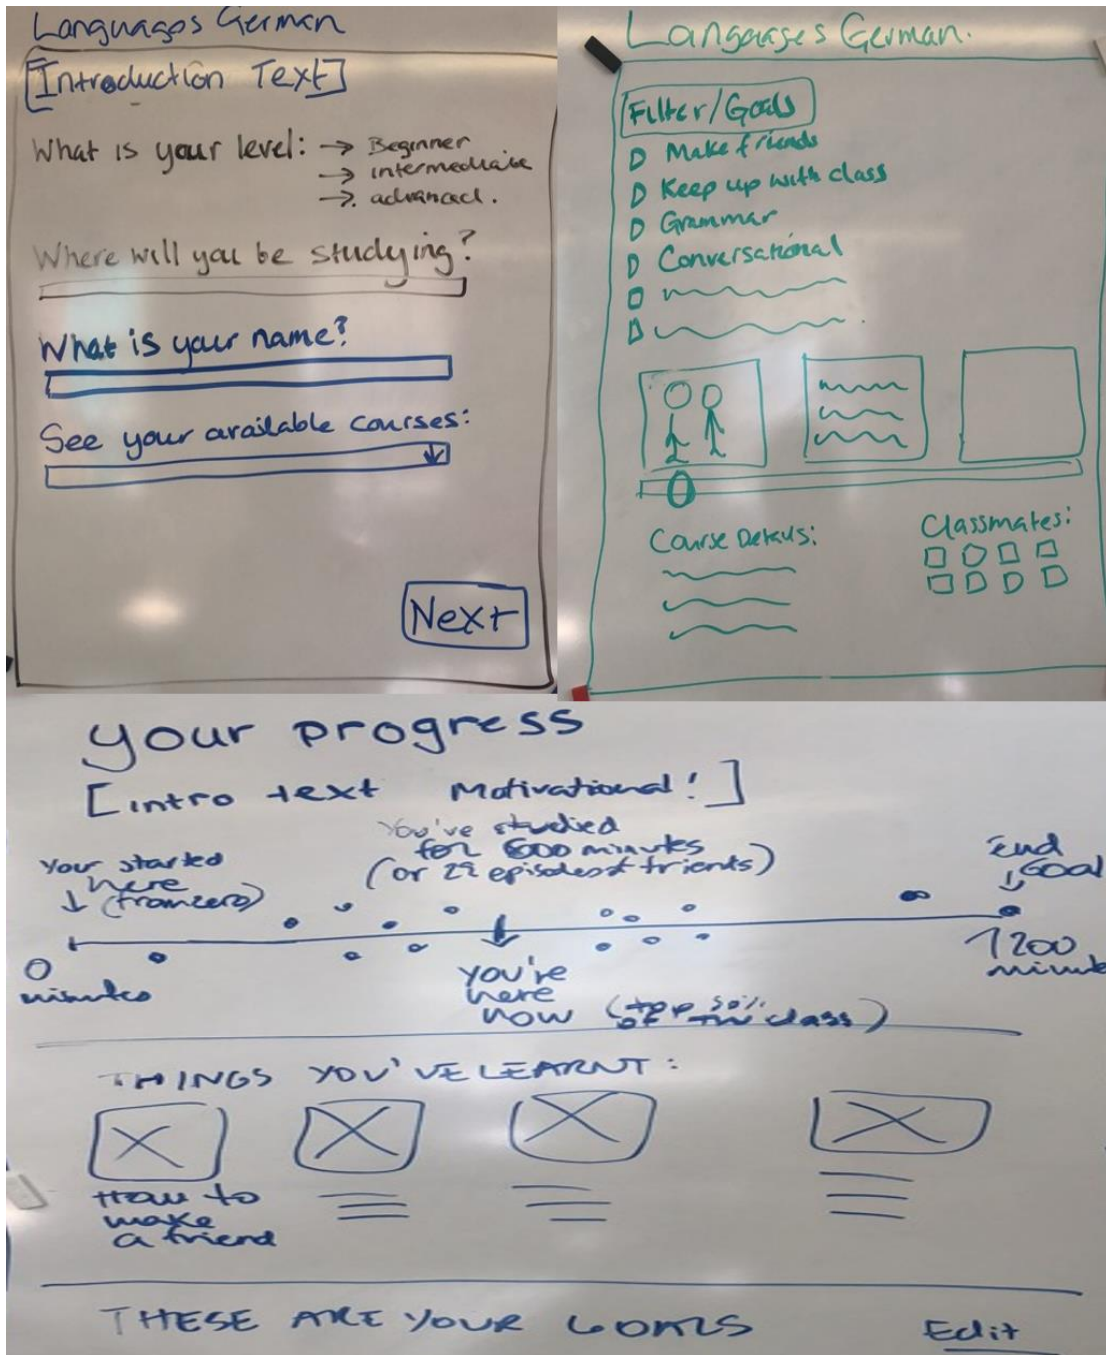 Languages German
[Introduction Text]
What is your level: → Beginner
→ intermediate
→ advanced.
Where will you be studying?
What is your name?
See your available courses:
Next
Languages German.
Filter/Goals
Make friends
Keep up with class
Grammar
Conversational
Course Details:
Classmates:
your progress
[intro text Motivational!]
You've studied
for 600 minutes
(or 29 episodes of friends)
Your started
here
(from zero)
End
Goal
0
minutes
You're
here
now (top 50%
of the class)
1200
minute
THINGS YOU'VE LEARNT:
How to
make
a friend
THESE ARE YOUR GOALS
Edit